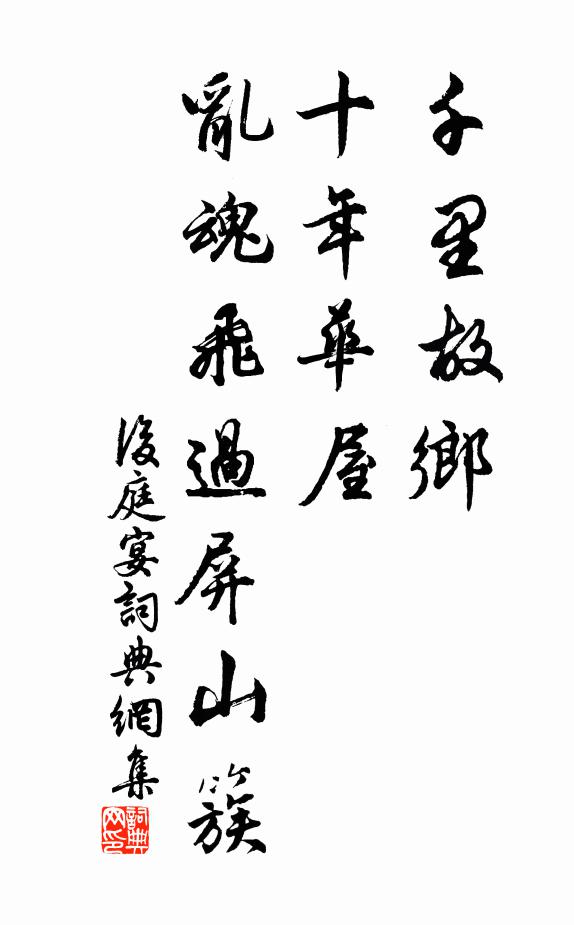 千里故鄉
十年華屋
亂魂飛過屏山簇
後庭宴詞典網集
詞典网印